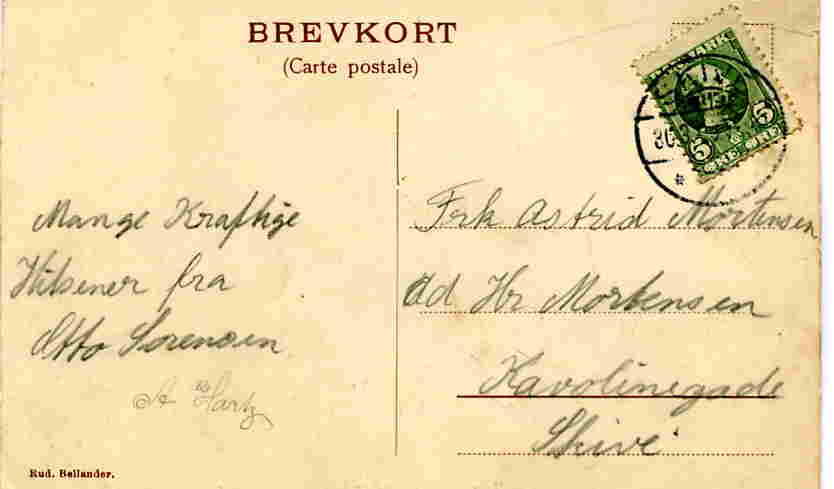 BREVKORT
(Carte postale)
DANMARK
5 5
ØRE ØRE
Mange Kraftige
Hilsener fra
Otto Sørensen
Hartz
Rud. Bellander.
Frk Astrid Mortensen
ad Hr Mortensen
Karolinegade
Skive